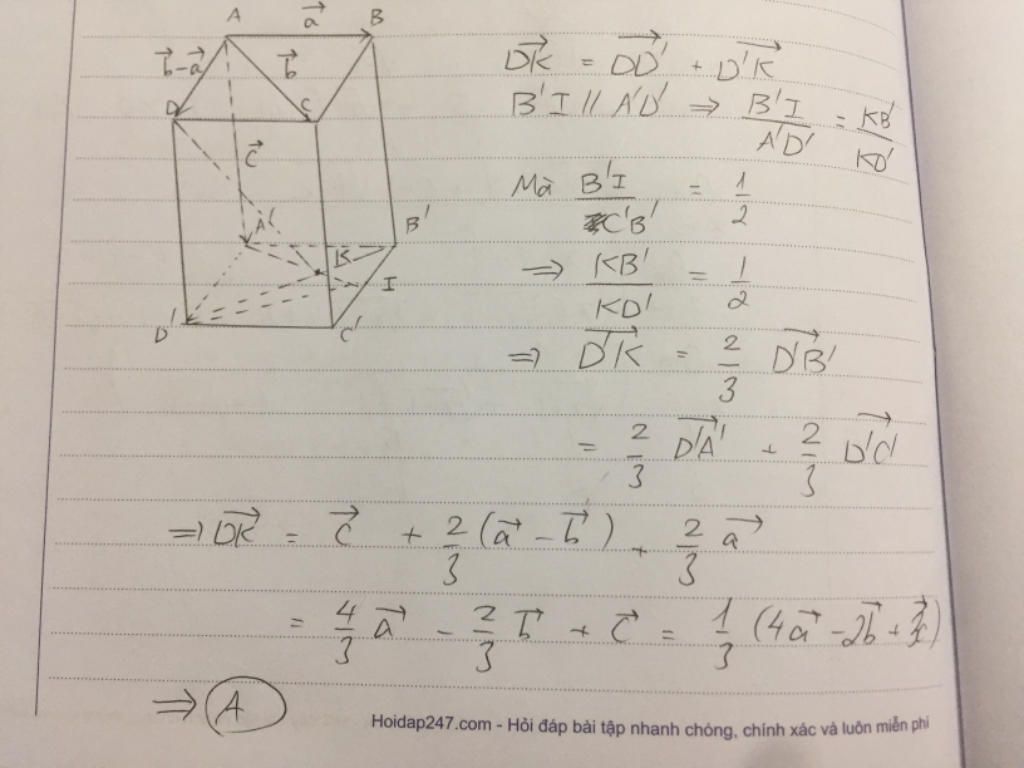 A a⃗ B
b⃗-a⃗ b⃗
D C
c⃗
A' B'
K I
D' C'
DK⃗ = DD'⃗ + D'K⃗
B'I // A'D' ⇒ B'I/A'D' = KB'/KD'
Mà B'I/C'B' = 1/2
⇒ KB'/KD' = 1/2
⇒ D'K⃗ = 2/3 D'B'⃗
= 2/3 D'A'⃗ + 2/3 D'C'⃗
⇒ DK⃗ = c⃗ + 2/3 (a⃗ - b⃗) + 2/3 a⃗
= 4/3 a⃗ - 2/3 b⃗ + c⃗ = 1/3 (4a⃗ - 2b⃗ + 3c⃗)
⇒ A
Hoidap247.com - Hỏi đáp bài tập nhanh chóng, chính xác và luôn miễn phí